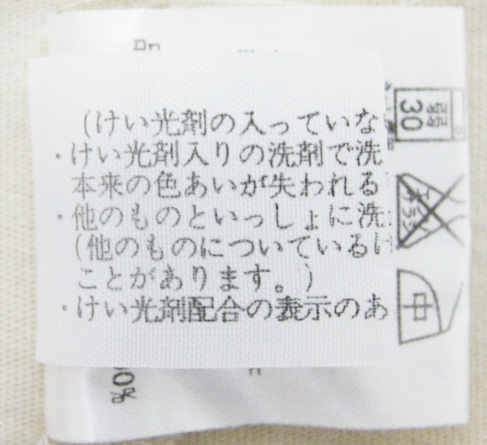 (けい光剤の入っていな
・けい光剤入りの洗剤で洗
本来の色あいが失われる
・他のものといっしょに洗
(他のものについているけ
ことがあります。)
・けい光剤配合の表示のあ
弱
30
エンソ
サラシ
中
0%